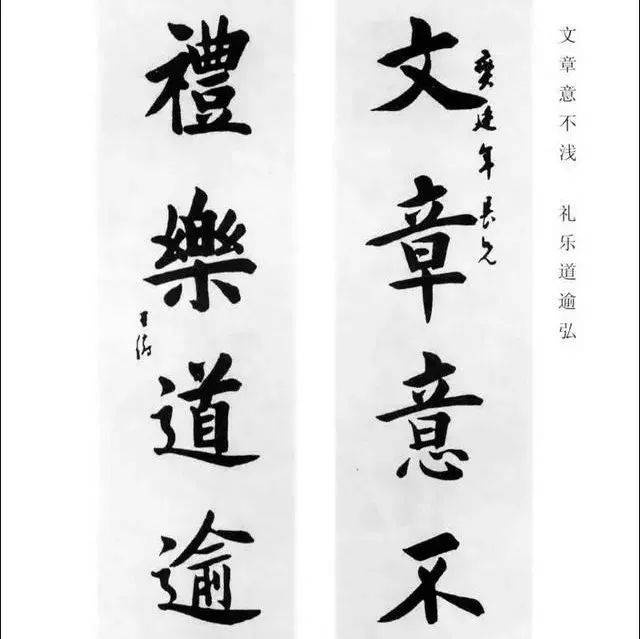 文章意不浅 礼乐道逾弘
廷年長兄
文章意不
禮樂道逾